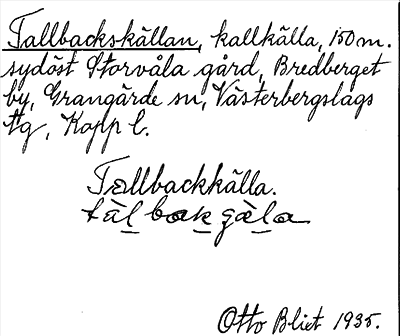 Tallbackskällan, kallkälla, 150 m.
sydöst Storvåla gård, Bredberget
by, Grangärde sn, Västerbergslags
tg, Kopp l.
Tallbackkälla.
tàl bak gæ̀la
Otto Blixt 1935.